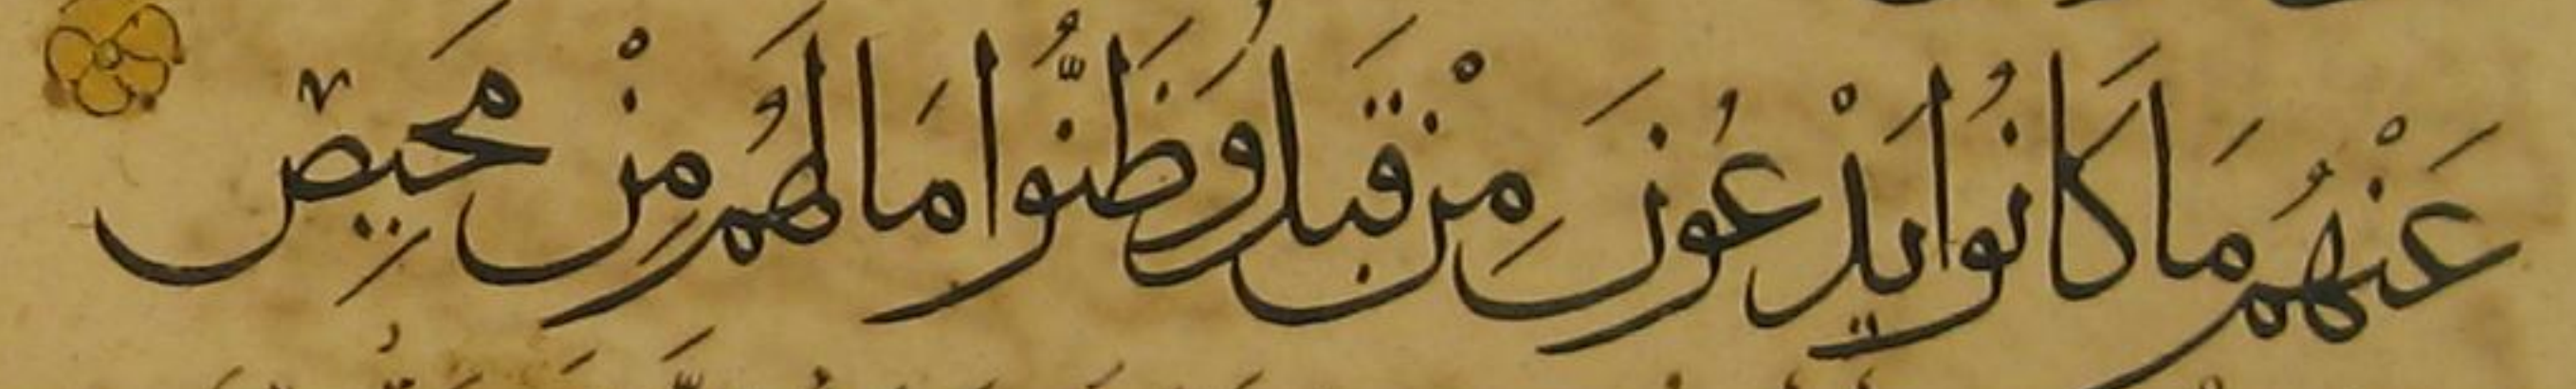 عَنْهُم مَا كَانُوا يَدْعُونَ مِنْ قَبْلُ وَظَنُّوا مَا لَهُم مِنْ مَحِيصٍ